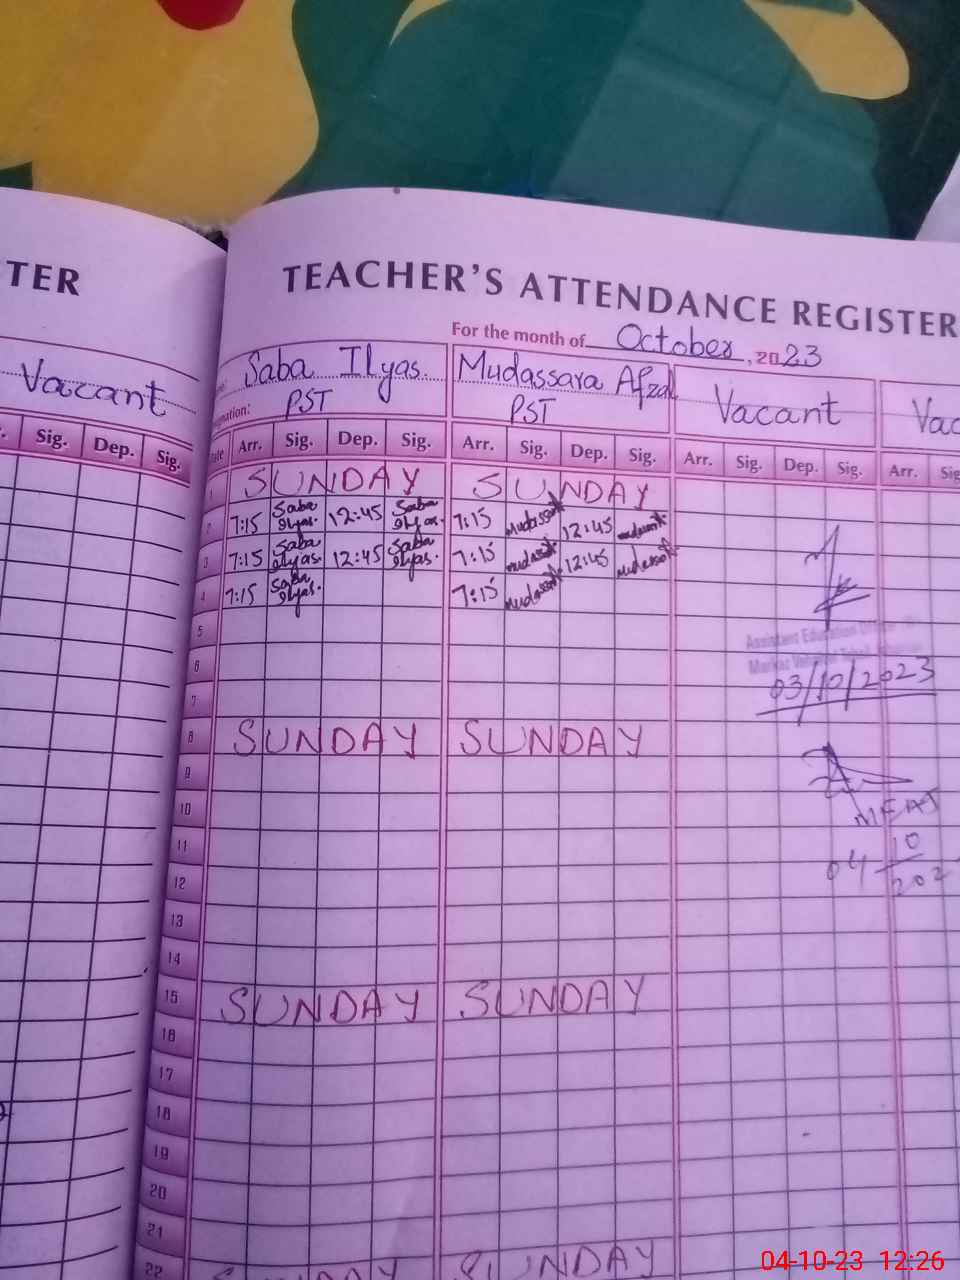 TER
TEACHER'S ATTENDANCE REGISTER
For the month of October, 2023
Vacant
Saba Ilyas. Mudassara Afzal Vacant
PST PST
Sig. Dep. Sig. Arr. Sig. Dep. Sig. Arr. Sig. Dep. Sig. Arr. Sig. Dep. Sig. Arr.
1 SUNDAY SUNDAY
2 7:15 Saba Ilyas. 12:45 Saba Ilyas. 7:15 12:45
3 7:15 Saba Ilyas. 12:45 Saba Ilyas. 7:15 12:45
4 7:15 Saba Ilyas. 7:15
5
6
Assistant Education
03/10/2023
7
8 SUNDAY SUNDAY
9
10
MEA
11
04 10
12
13
14
15 SUNDAY SUNDAY
16
17
18
19
20
21
22 SUNDAY SUNDAY
04-10-23 12:26